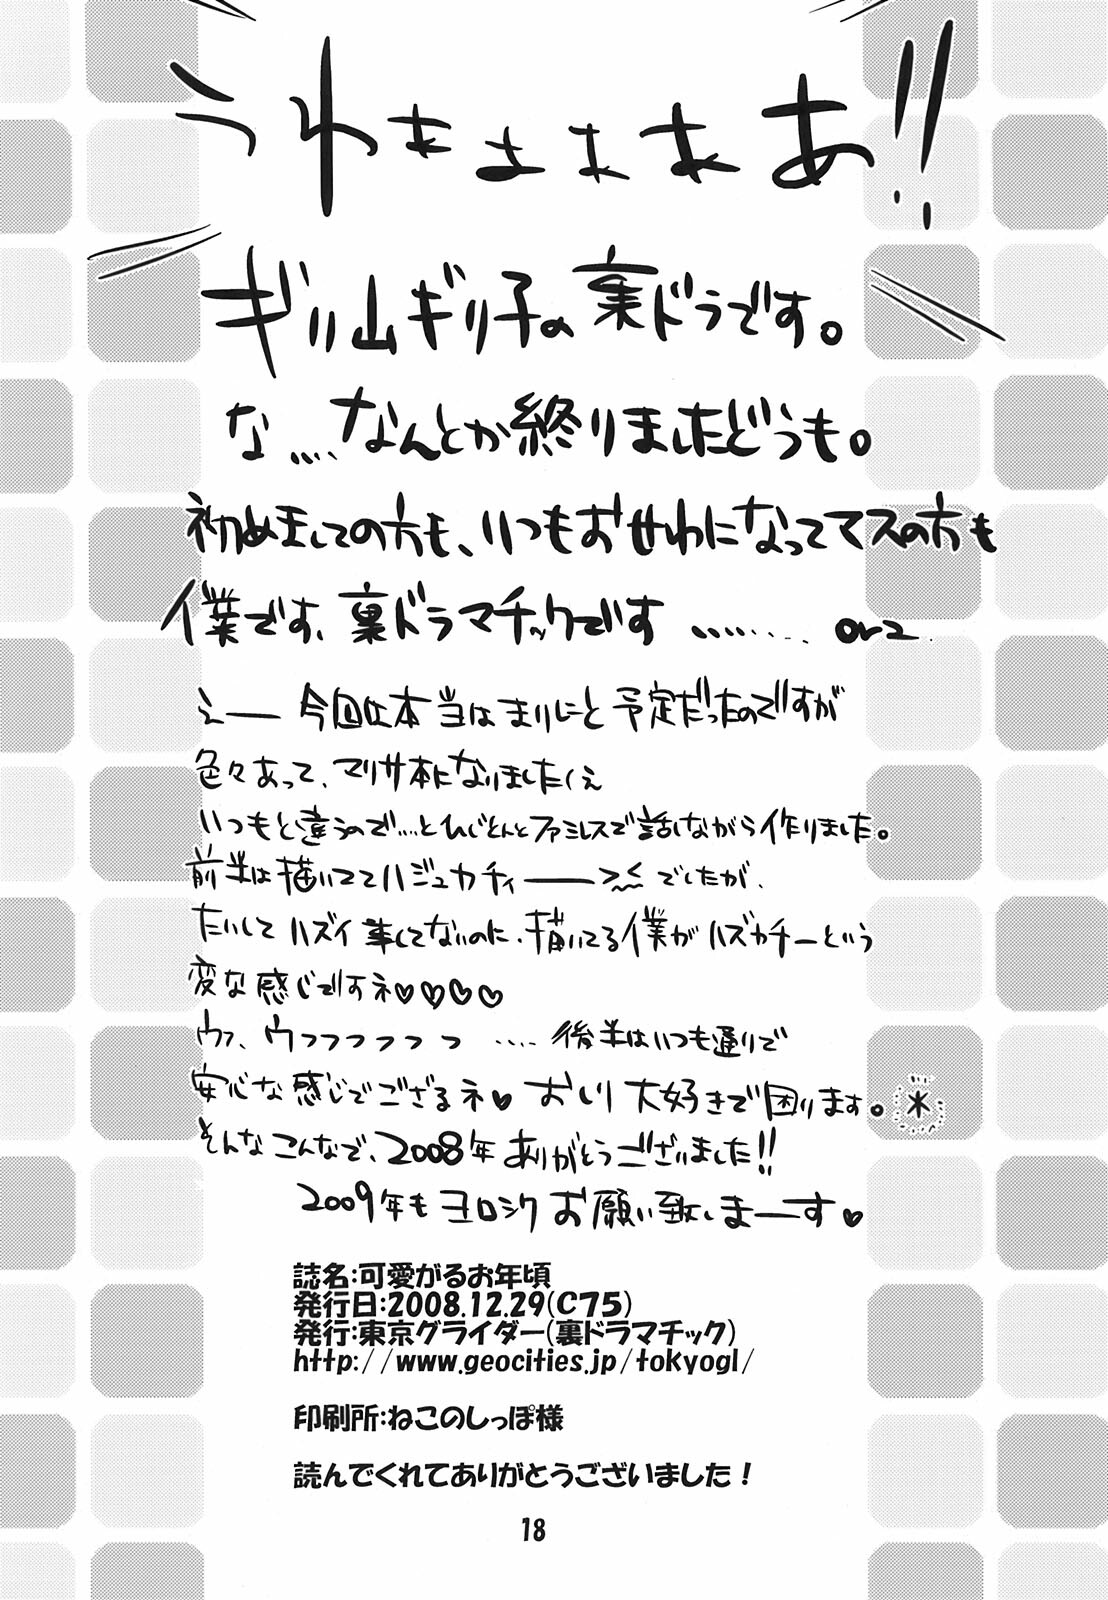 うわぁぁぁぁあ!!
ギリ山ギリ子の裏ドラです。
な....なんとか終りましたどうも。
初めましての方も、いつもおせわになってマスの方も
僕です、裏ドラマチックです ......... orz
えー 今回は本当はまりにと予定だったのですが
色々あって、マリサ本になりましたくぇ
いつもと違うので....とひじとんとファミレスで話しながら作りました。
前半は描いててハジュカチィーーでしたが、
たいしてハズイ事してないのに、描いてる僕がハズカチーという
変な感じですネ♡♡♡♡
ウフ、ウフフフフフフ .... 後半はいつも通りで
安心な感じでござるネ♥ おしり大好きで困ります。
そんなこんなで、2008年ありがとうございました!!
2009年もヨロシクお願い致しまーーす♥
誌名:可愛がるお年頃
発行日:2008.12.29(C75)
発行:東京グライダー(裏ドラマチック)
http://www.geocities.jp/tokyogl/
印刷所:ねこのしっぽ様
読んでくれてありがとうございました！
18